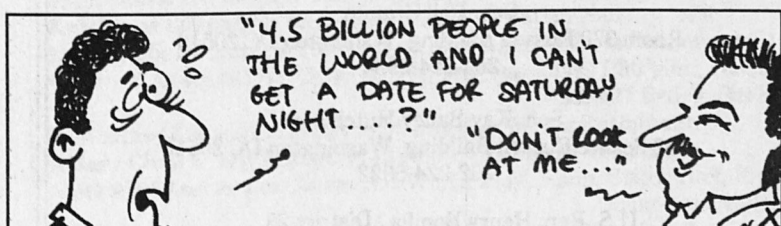 "4.5 BILLION PEOPLE IN
THE WORLD AND I CAN'T
GET A DATE FOR SATURDAY
NIGHT.... ?"
"DON'T LOOK
AT ME..."